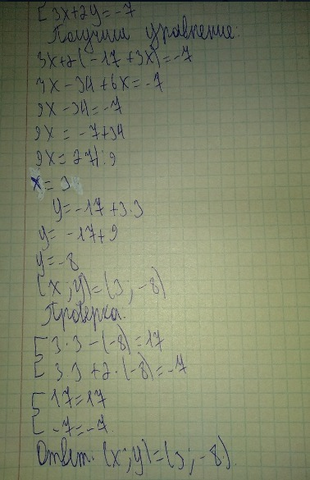 [3x+2y=-7
Получим уравнение:
3x+2(-17+3x)=-7
3x-34+6x=-7
9x-34=-7
9x=-7+34
9x=27|:9
x=3
y=-17+3.3
y=-17+9
y=-8
(x;y)=(3;-8)
Проверка.
[3·3-(-8)=17
[3·3+2·(-8)=-7
[17=17
[-7=-7.
Ответ. (x;y)=(3;-8).